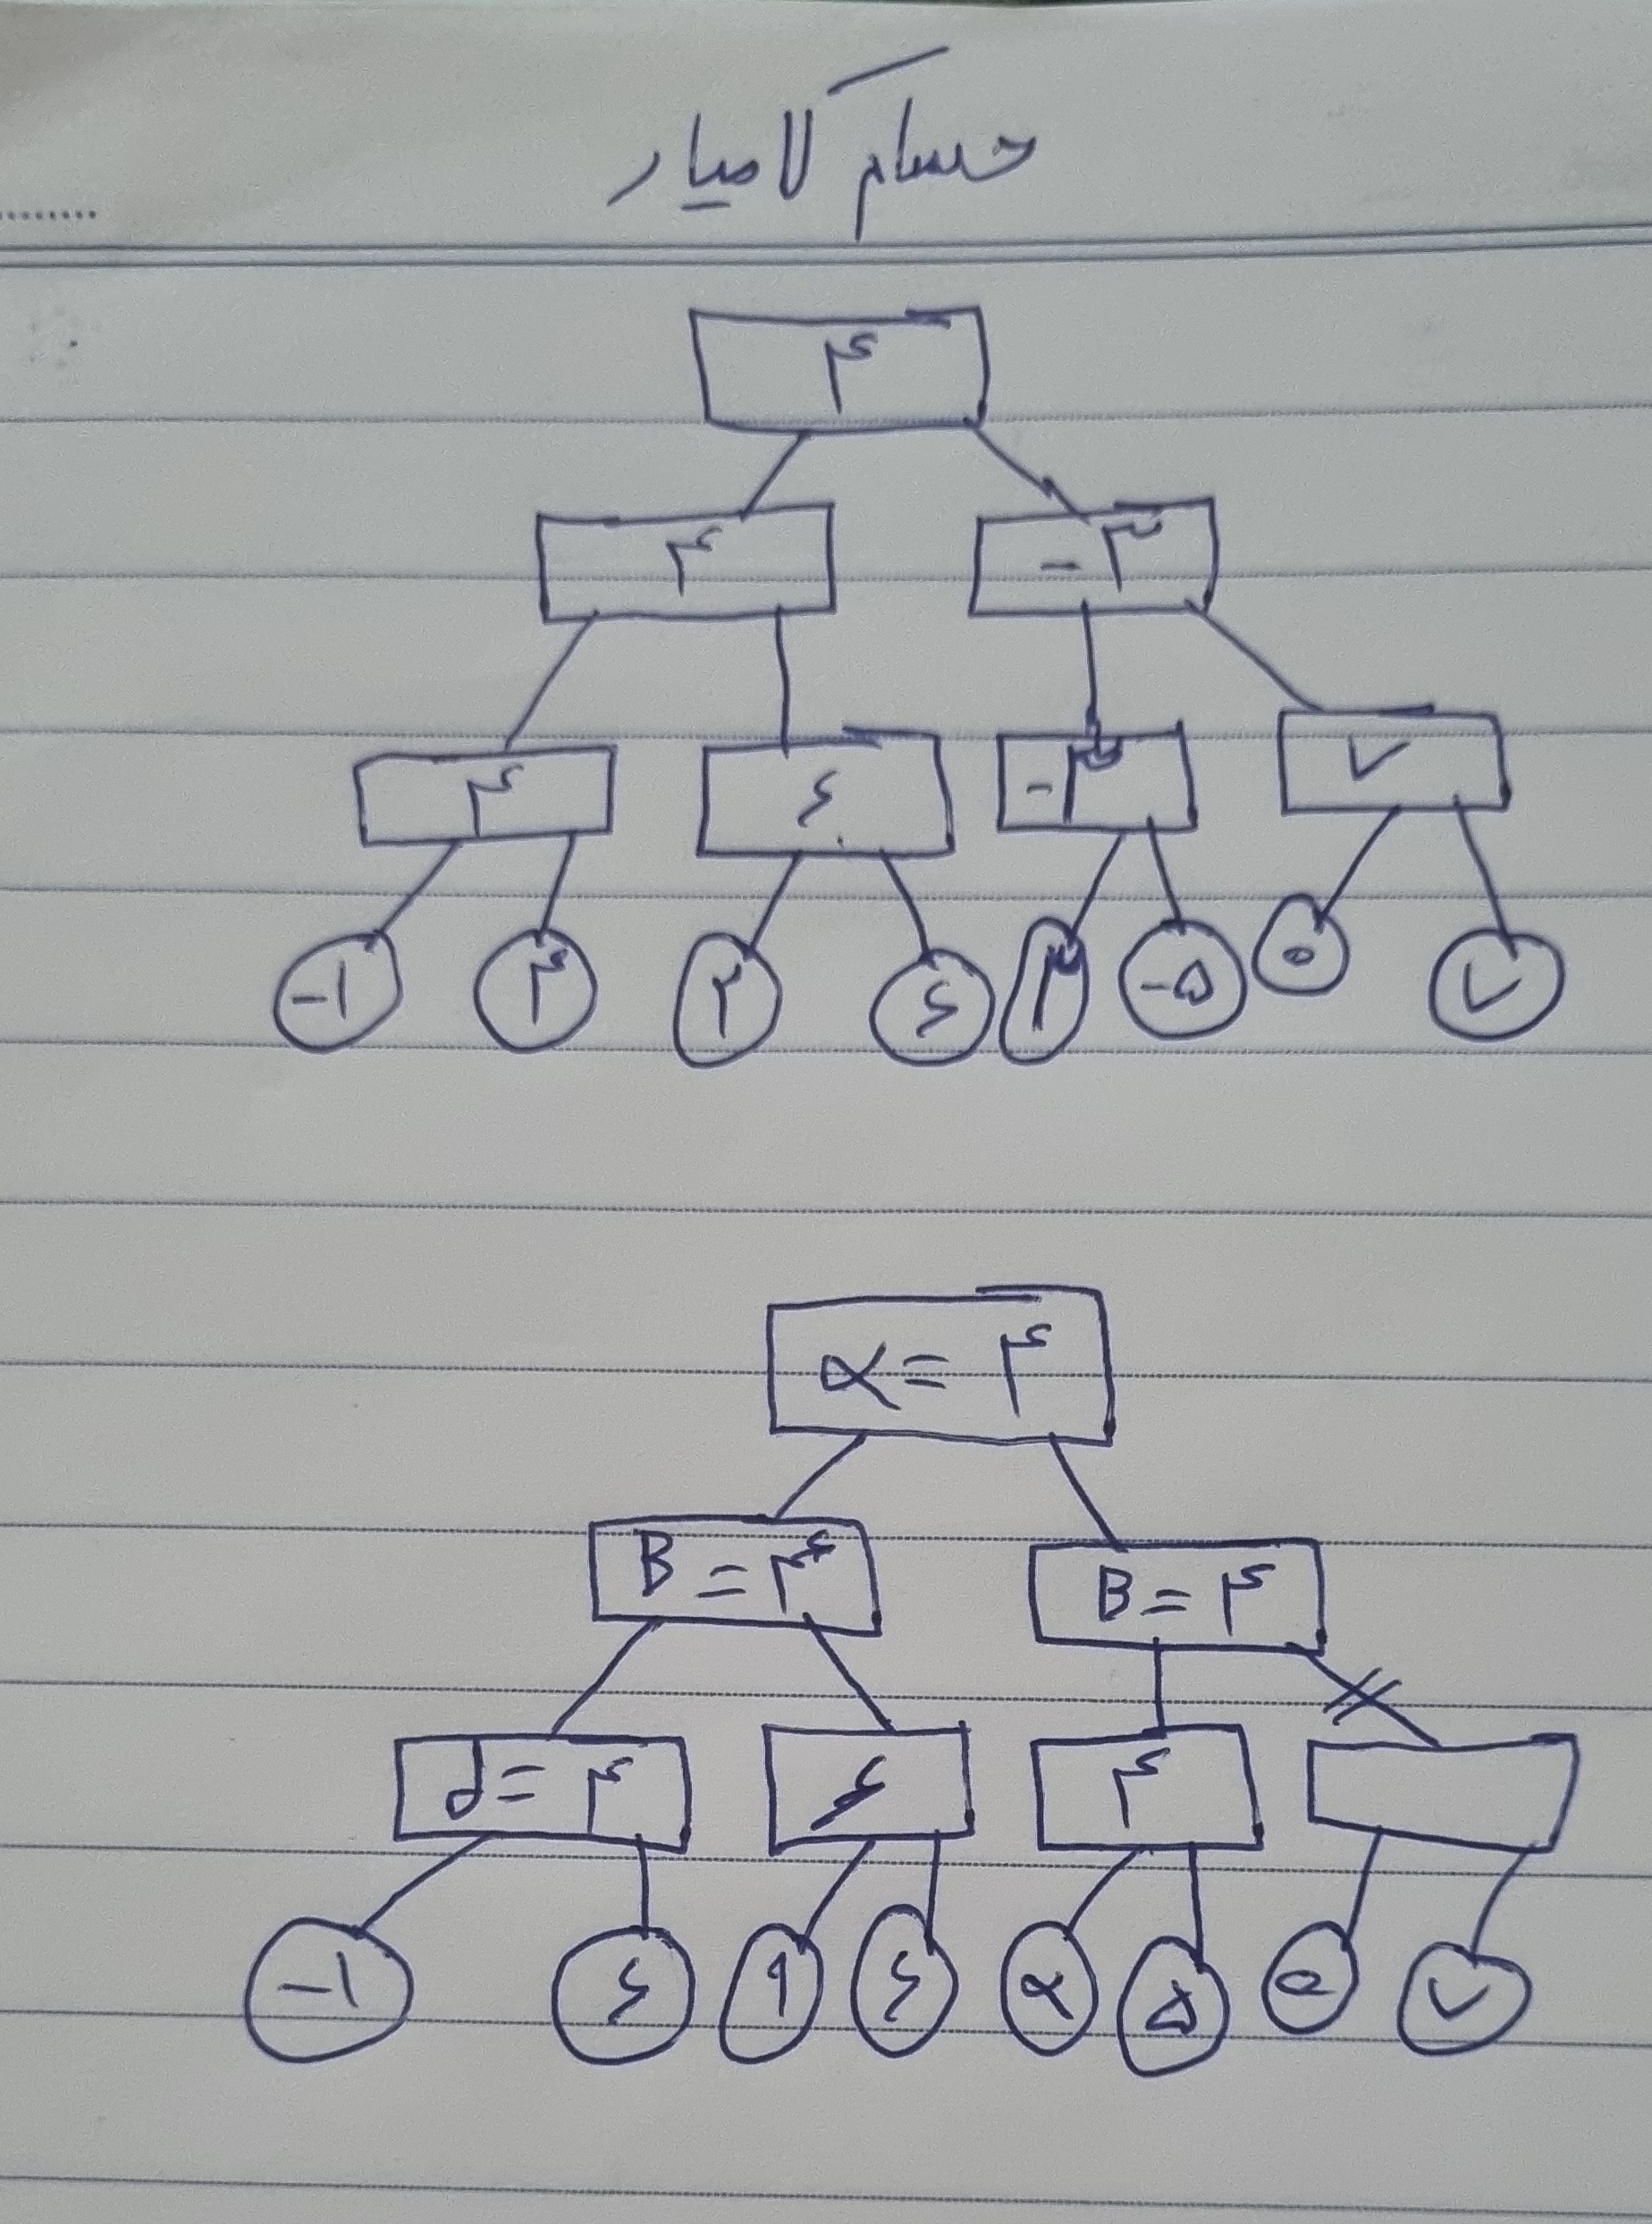 حسام کامیار
۴
۴ -۳
۴ ۶ -۳ ۷
-۱ ۴ ۲ ۶ -۵ ۰ ۷
α= ۴
B = ۴ B = ۴
= ۴ ۶ ۴
-۱ ۶ ۹ ۶ α ۵ ۰ ۷